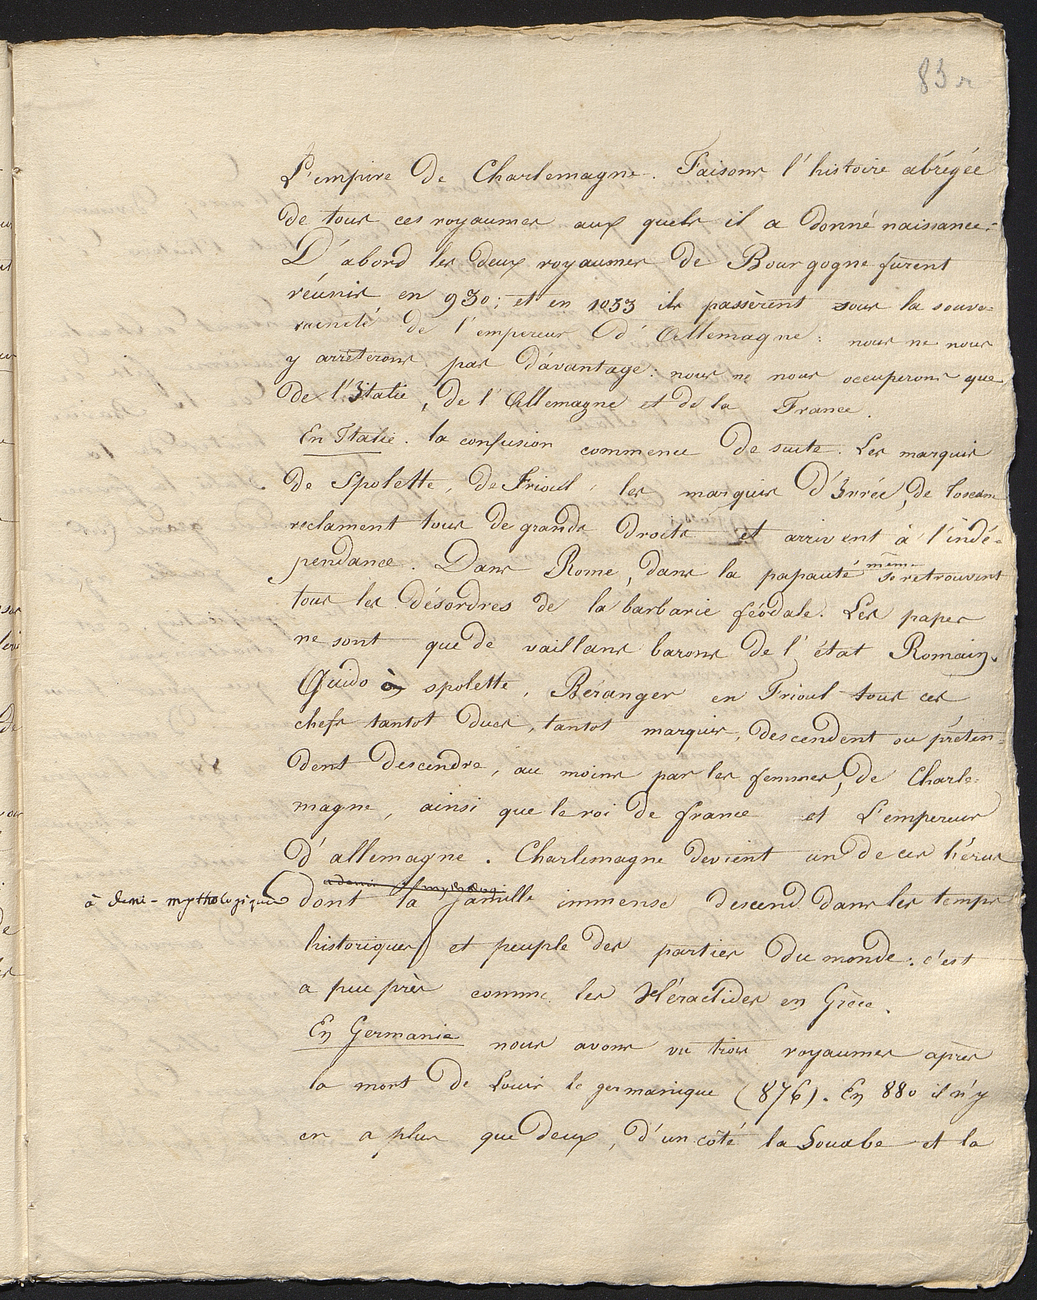 83 r
L'empire de Charlemagne. Faisons l'histoire abrégée
de tous ces royaumes aux quels il a donné naissance.
D'abord les deux royaumes de Bourgogne furent
réunis en 930; et en 1033 ils passèrent sous la souve-
raineté de l'empereur d'Allemagne: nous ne nous
y arrêterons pas d'avantage: nous ne nous occuperons que
de l'Italie, de l'Allemagne et de la France.
En Italie. la confusion commence de suite. Les marquis
de Spolette, de Frioul, les marquis d'Ivrée, de toscane
réclament tous de grands droits et arrivent à l'indé-
pendance. Dans Rome, dans la papauté même se retrouvent
tous les désordres de la barbarie féodale. Les papes
ne sont que de vaillans barons de l'état Romain.
Guido à spolette, Béranger en Frioul tous ces
chefs tantot ducs, tantot marquis, descendent ou préten-
dent descendre, au moins par les femmes, de Charle-
magne, ainsi que le roi de france et L'empereur
d'allemagne. Charlemagne devient un de ces héros
à demi-mythologiques
dont la famille immense descend dans les temps
historiques et peuple des parties du monde: c'est
a peu près comme les Héraclides en Grèce.
En Germanie nous avons vu trois royaumes après
la mort de Louis le germanique (876). En 880 il n'y
en a plus que deux, d'un côté la Souabe et la